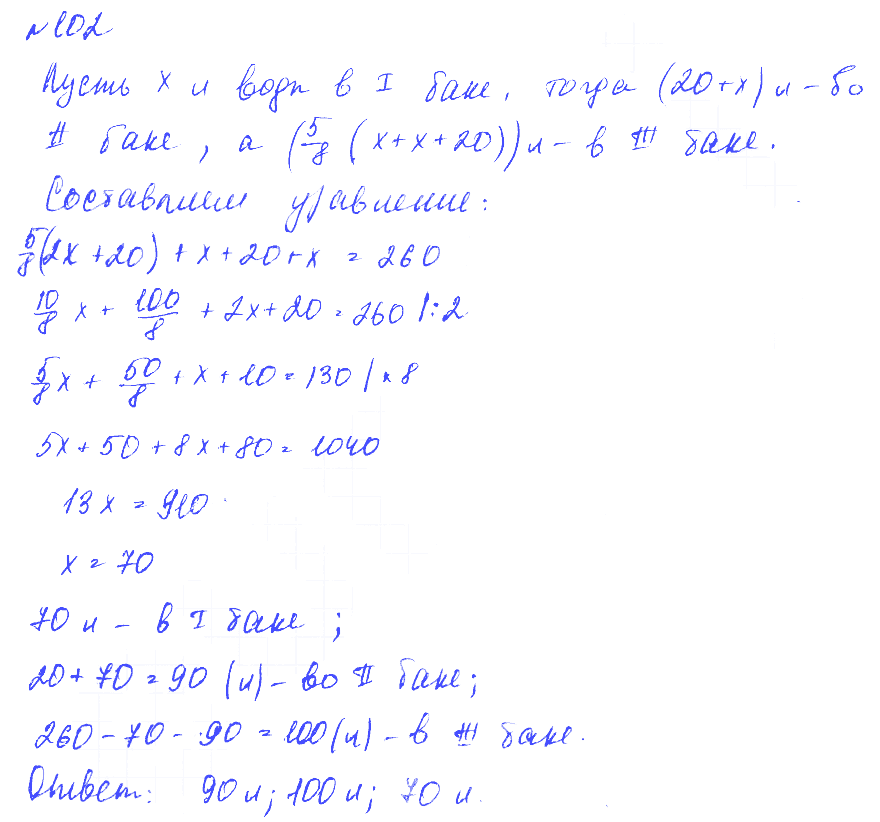 №102
Пусть x л воды в I баке, тогда (20+x) л – во
II баке, а (5/8 (x+x+20)) л – в III баке.
Составляем уравнение:
5/8(2x+20) + x+20+x = 260
10/8 x + 100/8 + 2x+20 = 260 |:2
5/8x + 50/8 + x+10 = 130 | × 8
5x+50+8x+80 = 1040
13x = 910
x = 70
70 л – в I баке;
20+70 = 90 (л) – во II баке;
260–70–90 = 100 (л) – в III баке.
Ответ: 90 л; 100 л; 70 л.